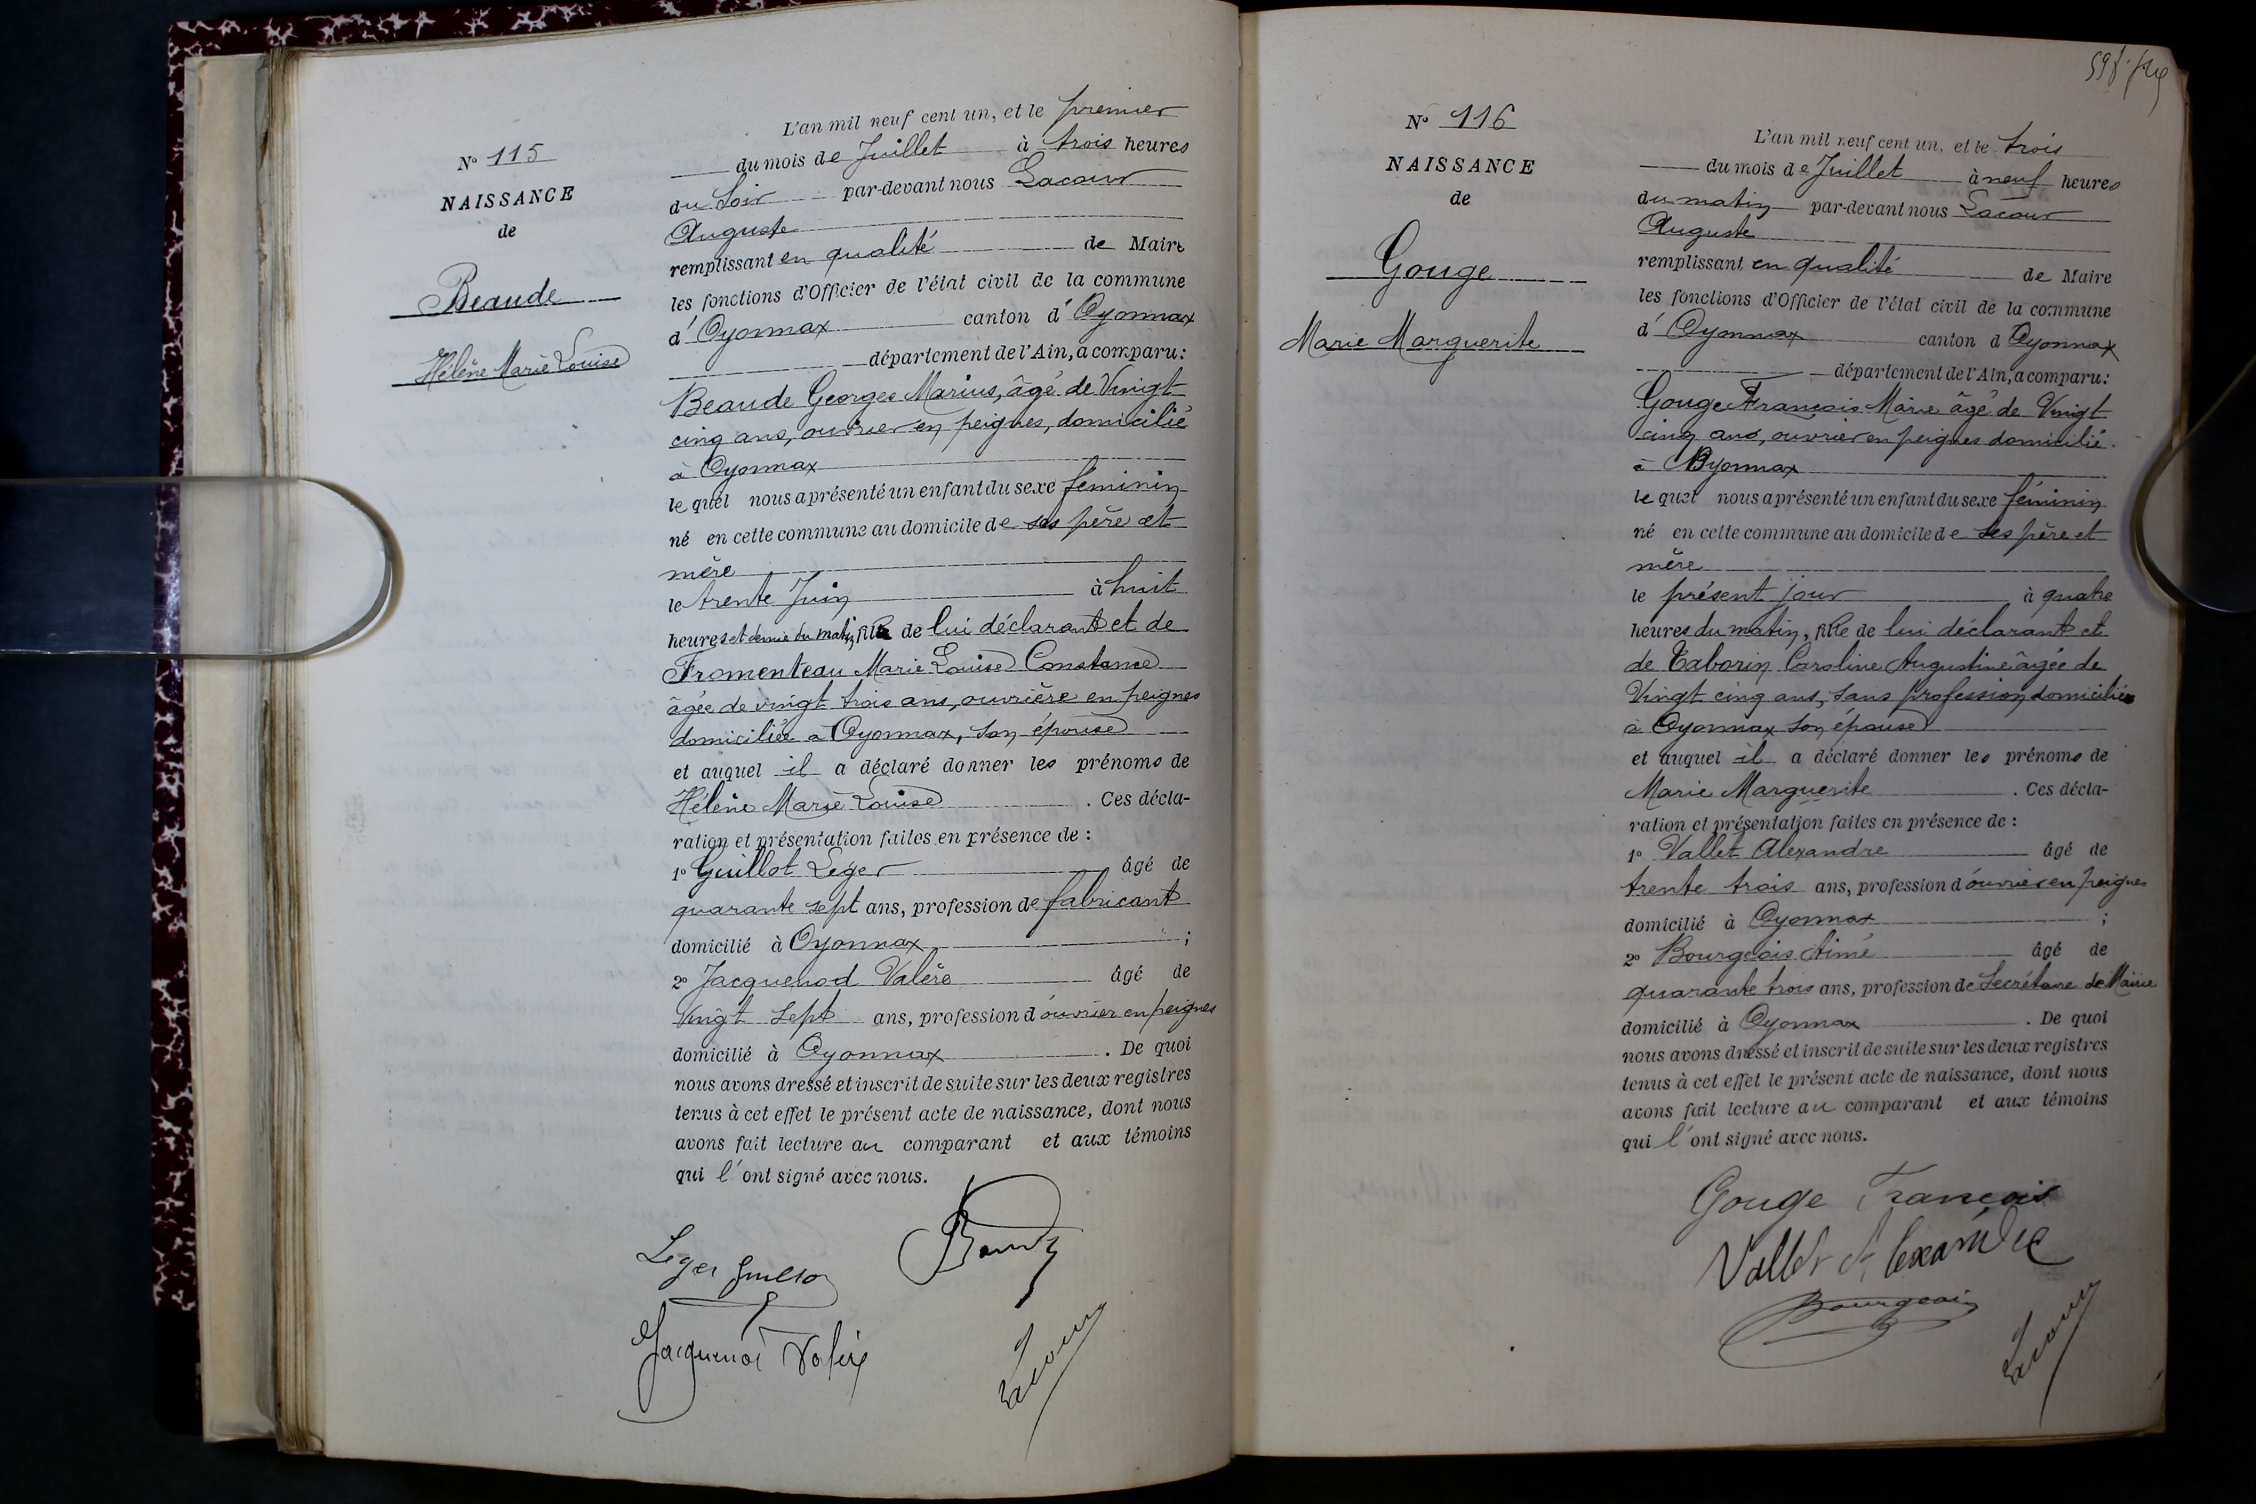 N° 115
NAISSANCE
de
Beaude
Hélène Marie Louise
L'an mil neuf cent un, et le premier
du mois de Juillet à trois heures
du Soir par-devant nous Lacour
Auguste
remplissant en qualité de Maire
les fonctions d'Officier de l'état civil de la commune
d'Oyonnax canton d'Oyonnax
département de l'Ain, a comparu:
Beaude Georges Marius, âgé de Vingt
cinq ans, ouvrier en peignes, domicilié
à Oyonnax
le quel nous a présenté un enfant du sexe féminin
né en cette commune au domicile de ses père et
mère
le trente Juin à huit
heures et demie du matin fille de lui déclarant et de
Fromenteau Marie Louise Constance
âgée de vingt trois ans, ouvrière en peignes
domiciliée à Oyonnax, son épouse
et auquel il a déclaré donner les prénoms de
Hélène Marie Louise . Ces décla-
ration et présentation faites en présence de :
1° Guillot Léger âgé de
quarante sept ans, profession de fabricant
domicilié à Oyonnax ;
2° Jacquenod Valère âgé de
Vingt sept ans, profession d'ouvrier en peignes
domicilié à Oyonnax . De quoi
nous avons dressé et inscrit de suite sur les deux registres
tenus à cet effet le présent acte de naissance, dont nous
avons fait lecture au comparant et aux témoins
qui l'ont signé avec nous.
Leger Guillot
Jacquenod Valère
Lacour
N° 116
NAISSANCE
de
Gouge
Marie Marguerite
L'an mil neuf cent un, et le trois
du mois de Juillet à neuf heures
du matin par-devant nous Lacour
Auguste
remplissant en qualité de Maire
les fonctions d'Officier de l'état civil de la commune
d'Oyonnax canton d Oyonnax
département de l'Ain, a comparu:
Gouge François Marie âgé de Vingt
cinq ans, ouvrier en peignes domicilié
à Oyonnax
le quel nous a présenté un enfant du sexe féminin
né en cette commune au domicile de ses père et
mère
le présent jour à quatre
heures du matin, fille de lui déclarant et
de Taborin Caroline Augustine âgée de
Vingt cinq ans, sans profession, domiciliée
à Oyonnax son épouse
et auquel il a déclaré donner les prénoms de
Marie Marguerite . Ces décla-
ration et présentation faites en présence de :
1° Vallet Alexandre âgé de
trente trois ans, profession d'ouvrier en peignes
domicilié à Oyonnax ;
2° Bourgeois Aimé âgé de
quarante trois ans, profession de Secrétaire de Mairie
domicilié à Oyonnax . De quoi
nous avons dressé et inscrit de suite sur les deux registres
tenus à cet effet le présent acte de naissance, dont nous
avons fait lecture au comparant et aux témoins
qui l'ont signé avec nous.
Gouge François
Vallet Alexandre
Bourgeois
Lacour